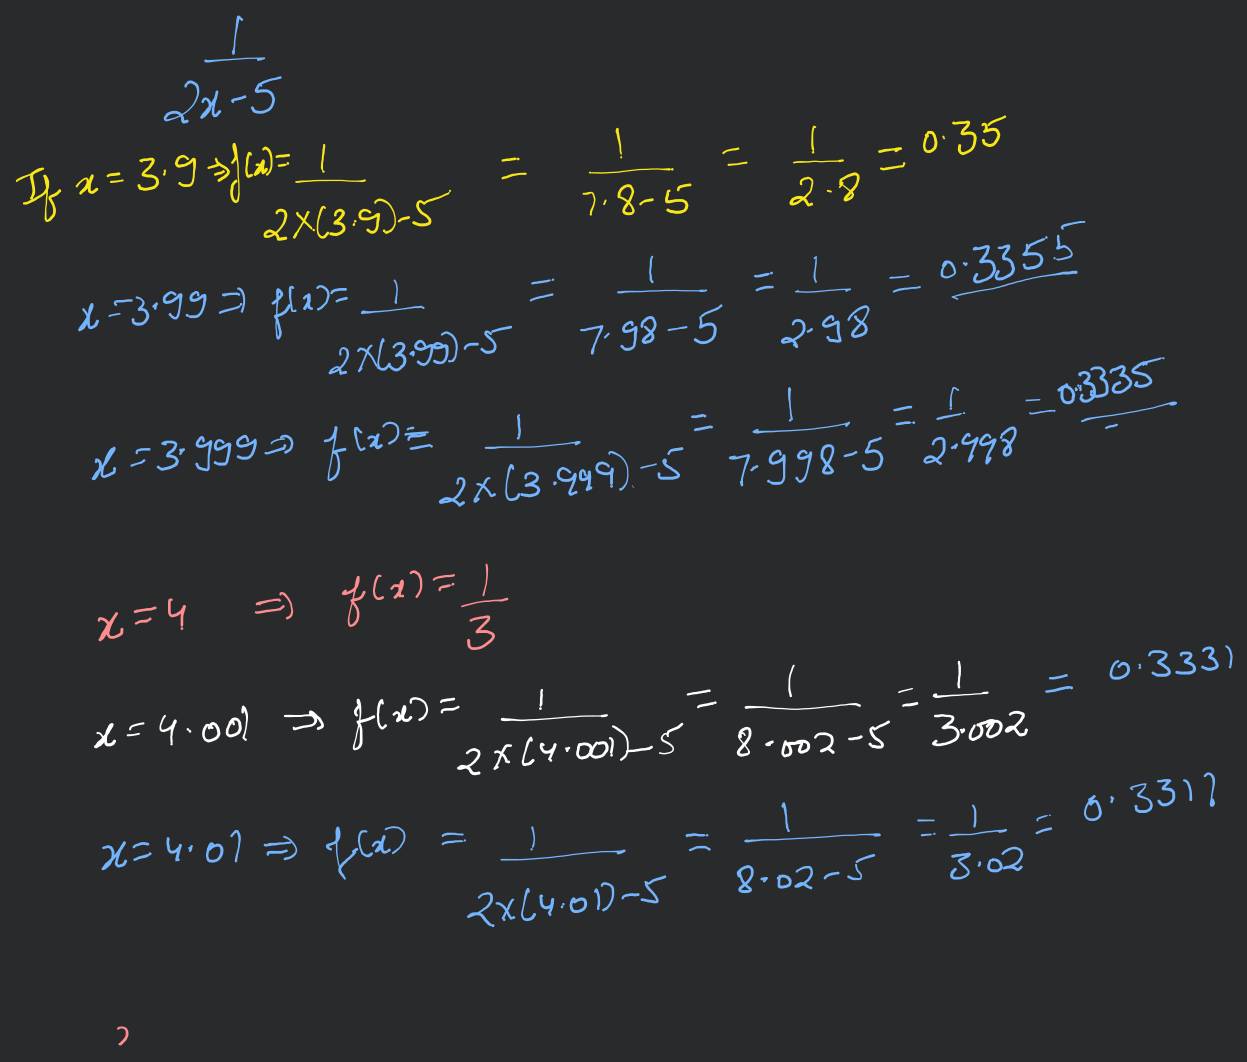 1/(2x-5)
If x = 3.9 ⇒ f(x) = 1/(2×(3.9)-5) = 1/(7.8-5) = 1/2.8 = 0.35
x = 3.99 ⇒ f(x) = 1/(2×(3.99)-5) = 1/(7.98-5) = 1/2.98 = 0.3355
x = 3.999 ⇒ f(x) = 1/(2×(3.999)-5) = 1/(7.998-5) = 1/2.998 = 0.3335
x = 4 ⇒ f(x) = 1/3
x = 4.001 ⇒ f(x) = 1/(2×(4.001)-5) = 1/(8.002-5) = 1/3.002 = 0.3331
x = 4.01 ⇒ f(x) = 1/(2×(4.01)-5) = 1/(8.02-5) = 1/3.02 = 0.3311